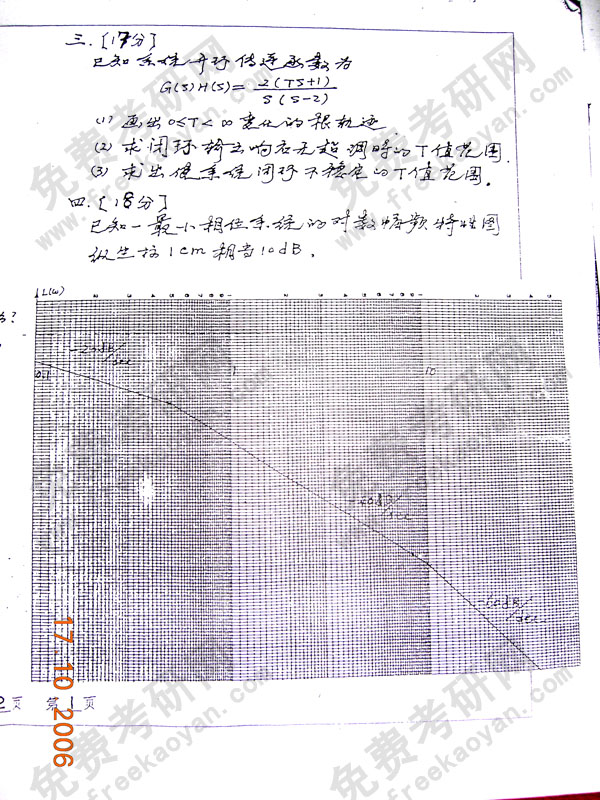 三.[17分]
已知系统开环传递函数为
G(S)H(S)= 2(TS+1)
S(S-2)
(1) 画出0≤T<∞变化的根轨迹.
(2) 求闭环输出响应无超调时的T值范围.
(3) 求出使系统闭环不稳定的T值范围.
四.[18分]
已知一最小相位系统的对数幅频特性图
纵坐标1cm相当10dB.
L(ω)
-20dB/sec
0.1 1 10
-40dB/sec
-60dB/sec
2页 第1页
17 10 2006
免费考研网
www.freekaoyan.com